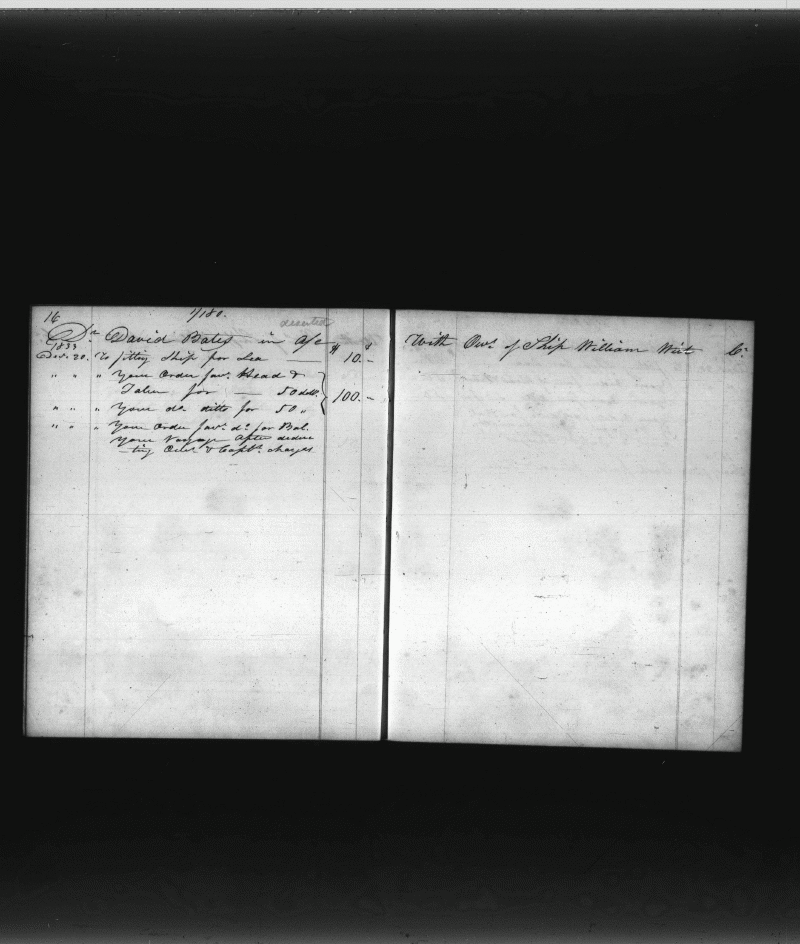 16 1/180.
deserted
Dr. David Bates in a/c
With Ows. of Ship William Wirt Cr.
1833 $
Decr. 20. To fitting Ship for Sea — 10.-
" " " Your Order favr. Head &
Taber for — 50 dolls. 100.-
" " " Your do. ditto for 50 "
" " " Your Order favr. do. for Bal.
Your Voyage after deduc
-ting Ows. & Capts. charges